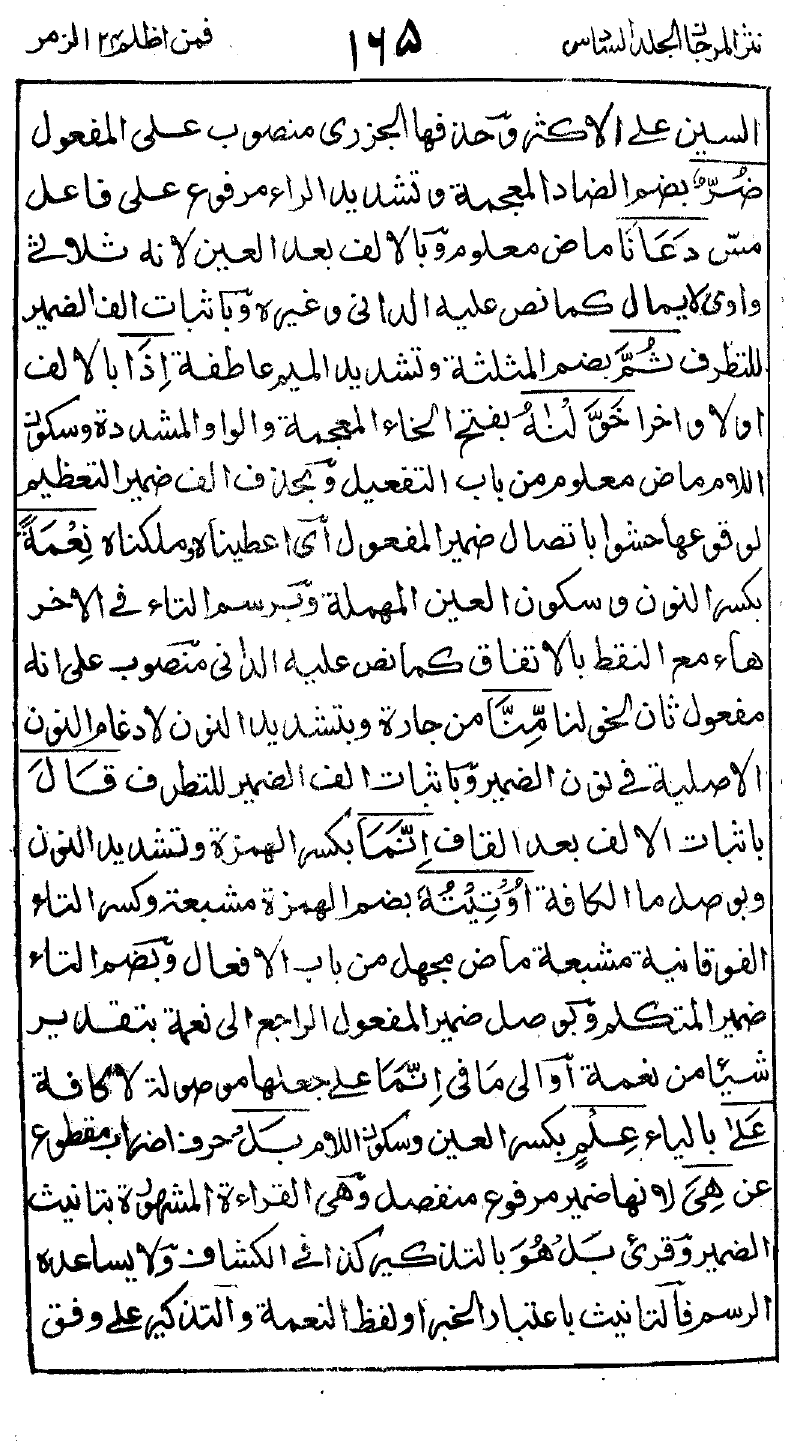 نثر المرجان الجلد السادس ١٦٥ فمن اظلم ٢٤ الزمر
السين على الاكثر وحذفها الجزرى منصوب على المفعول
ضُرٌّ بضم الضاد المعجمة وتشديد الراء مرفوع على فاعل
مسّ دَعَانَا ماض معلوم وبالالف بعد العين لانه ثلاثى
واوى لا يمال كما نص عليه الدانى وغيره وباثبات الف الضمير
للتطرف ثُمَّ بضم المثلثة وتشديد الميم عاطفة إِذَا بالالف
اولا واخرا خَوَّلْنٰهُ بفتح الخاء المعجمة والواو المشددة وسكون
اللام ماض معلوم من باب التفعيل وبحذف الف ضمير التعظيم
لوقوعها حشوا باتصال ضمير المفعول أى اعطيناه وملكناه نِعْمَةً
بكسر النون وسكون العين المهملة وبرسم التاء فى الاخر
هاء مع النقط بالاتفاق كما نص عليه الدانى منصوب على انه
مفعول ثان لخولنا مِّنَّا من جارة وبتشديد النون لادغام النون
الاصلية فى نون الضمير وباثبات الف الضمير للتطرف قَالَ
باثبات الالف بعد القاف إِنَّمَا بكسر الهمزة وتشديد النون
وبوصل ما الكافة أُوْتِيْتُهُ بضم الهمزة مشبعة وكسر التاء
الفوقانية مشبعة ماض مجهل من باب الافعال وبضم التاء
ضمير المتكلم وبوصل ضمير المفعول الراجع الى نعمة بتقدير
شيئا من نعمة أو الى مَا فى إِنَّمَا على جعلها موصولة لا كافة
عَلٰى بالياء عِلْمٍ بكسر العين وسكون اللام بَلْ حرف اضراب مقطوع
عن هِىَ لانها ضمير مرفوع منفصل وهى القراءة المشهورة بتانيث
الضمير وقرئ بَلْ هُوَ بالتذكير كذا فى الكشاف ولا يساعده
الرسم فالتانيث باعتبار الخبر او لفظ النعمة والتذكير على وفق